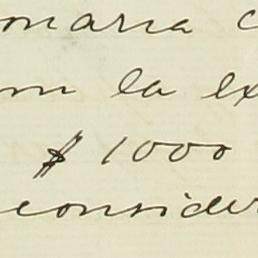 onaria c
m la ex
$ 1000
consider